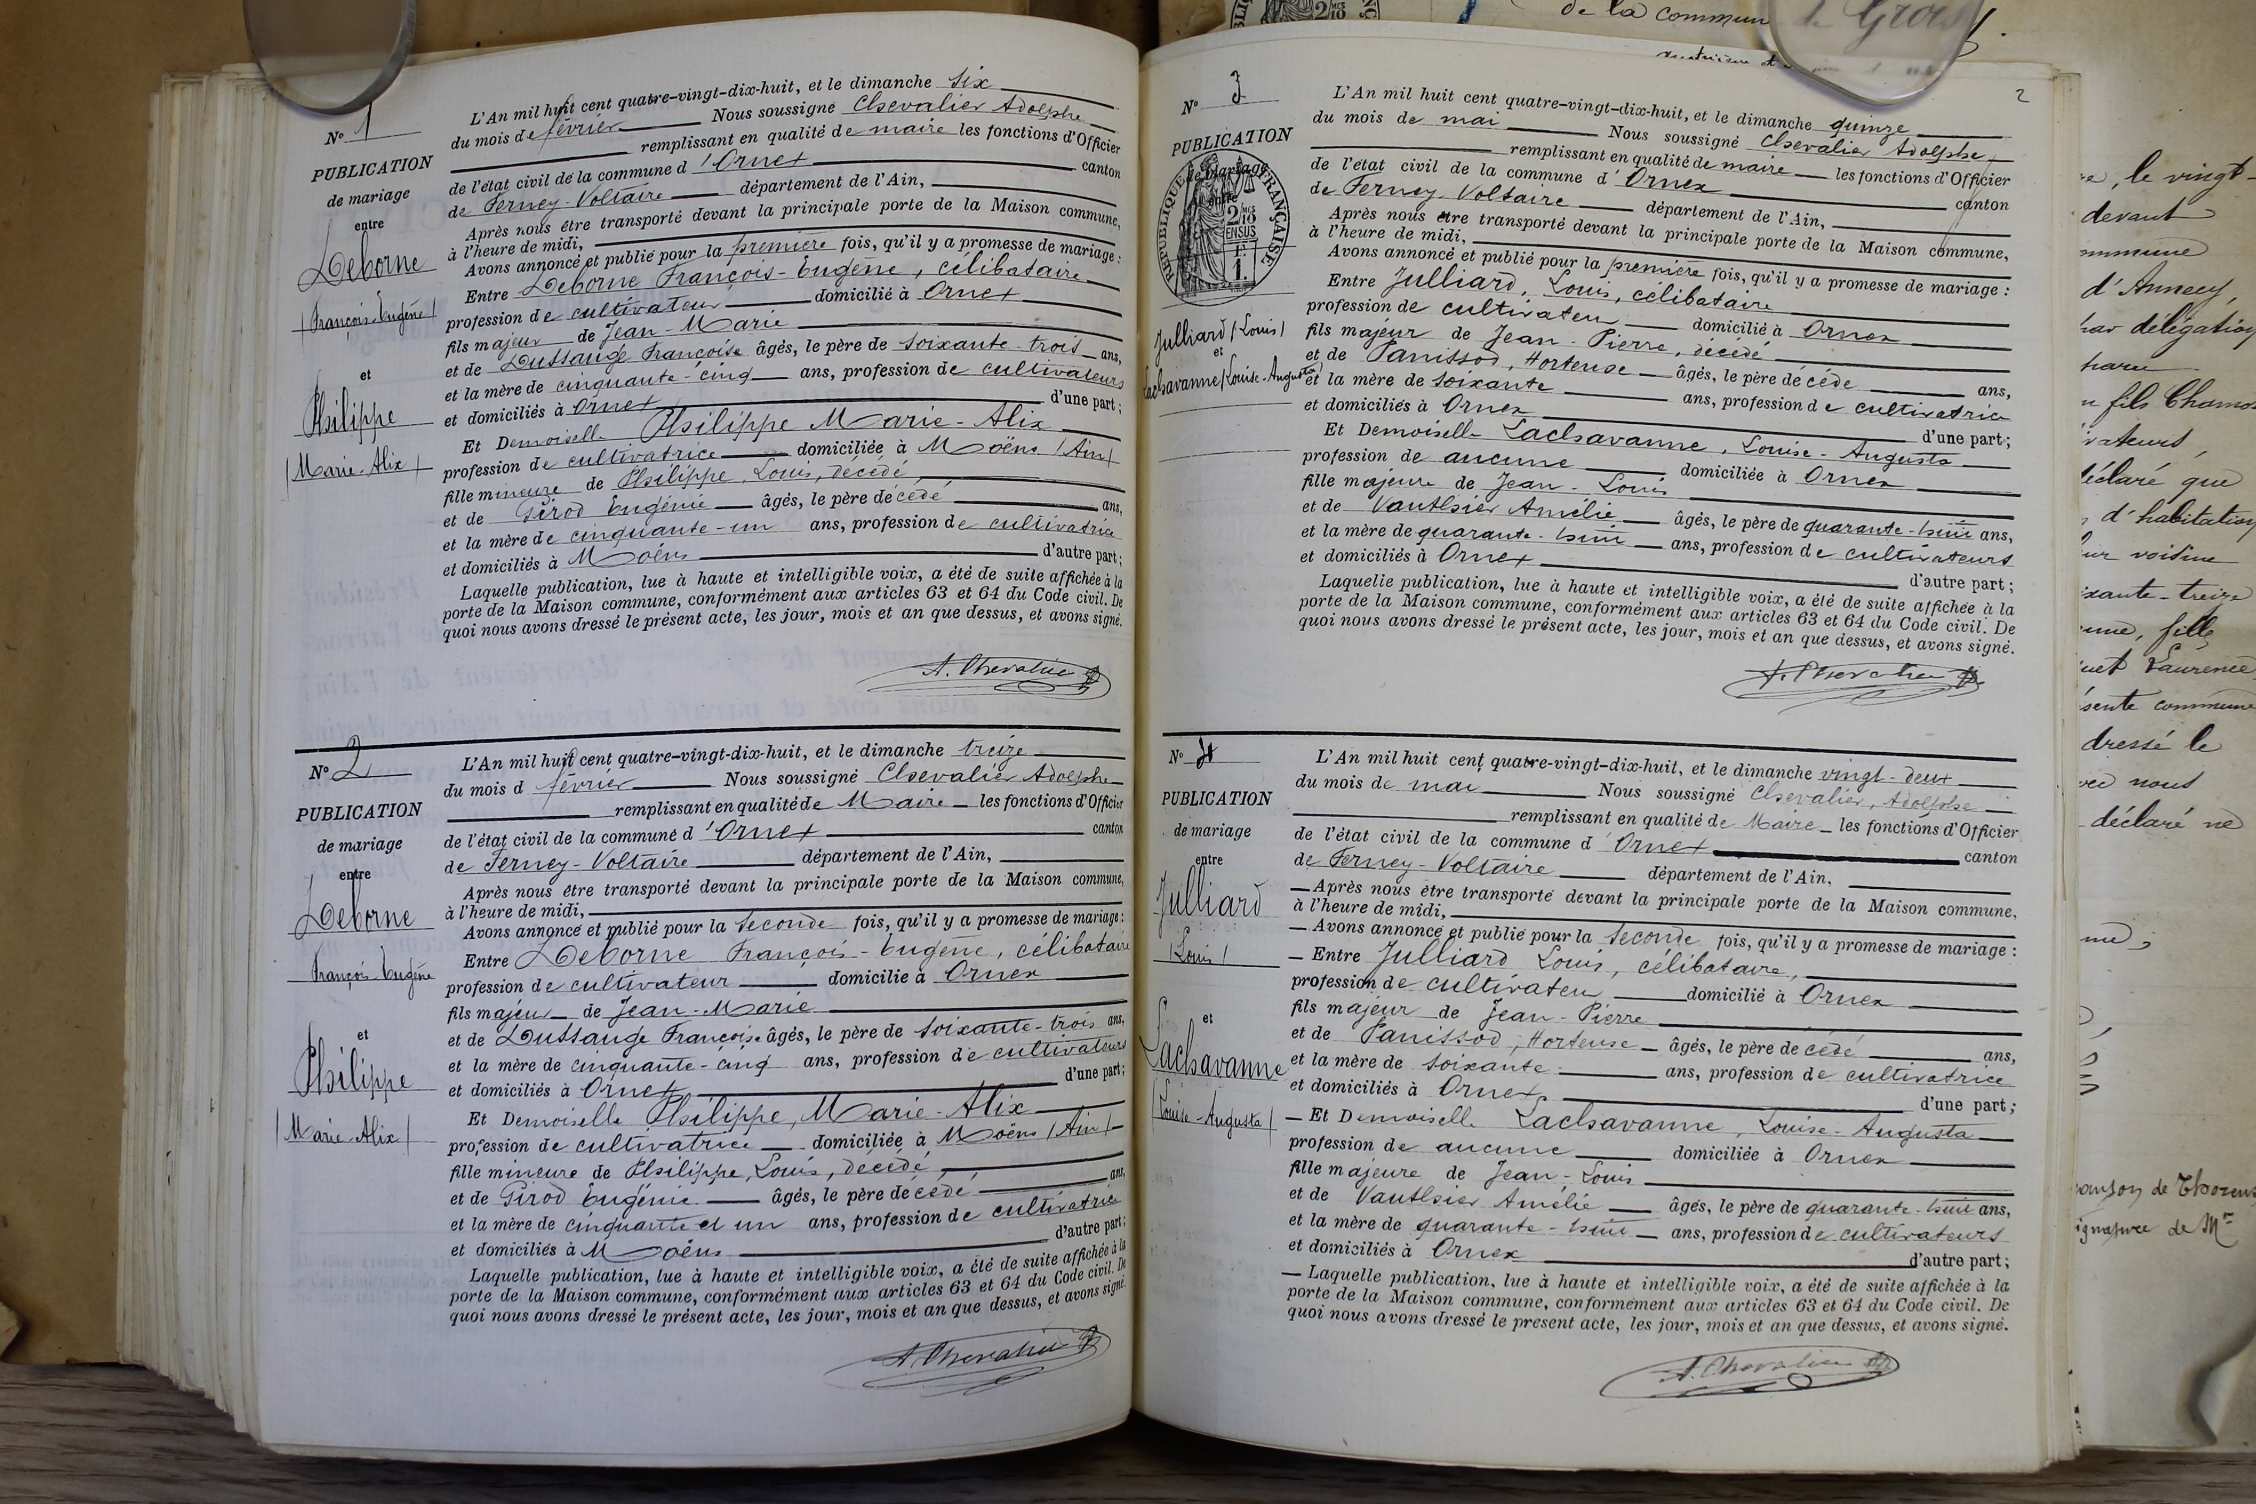 N° 1
PUBLICATION
de mariage
entre
Deborne
(François-Eugène)
et
Philippe
(Marie-Alix)
L'An mil huit cent quatre-vingt-dix-huit, et le dimanche six
du mois de février Nous soussigné Chevalier Adolphe
remplissant en qualité de maire les fonctions d'Officier
de l'état civil de la commune d'Ornex canton
de Ferney-Voltaire département de l'Ain,
Après nous être transporté devant la principale porte de la Maison commune,
à l'heure de midi,
Avons annoncé et publié pour la première fois, qu'il y a promesse de mariage :
Entre Deborne François-Eugène, célibataire
profession de cultivateur domicilié à Ornex
fils majeur de Jean-Marie
et de Dussauge Françoise âgés, le père de soixante-trois ans,
et la mère de cinquante-cinq ans, profession de cultivateurs
et domiciliés à Ornex d'une part ;
Et Demoiselle Philippe Marie-Alix
profession de cultivatrice domiciliée à Moëns (Ain)
fille mineure de Philippe, Louis, décédé
et de Girod Eugénie âgés, le père décédé ans,
et la mère de cinquante-un ans, profession de cultivatrice
et domiciliés à Moëns d'autre part ;
Laquelle publication, lue à haute et intelligible voix, a été de suite affichée à la
porte de la Maison commune, conformément aux articles 63 et 64 du Code civil. De
quoi nous avons dressé le présent acte, les jour, mois et an que dessus, et avons signé.
A. Chevalier
N° 2
PUBLICATION
de mariage
entre
Deborne
François-Eugène
et
Philippe
(Marie-Alix)
L'An mil huit cent quatre-vingt-dix-huit, et le dimanche treize
du mois d février Nous soussigné Chevalier Adolphe
remplissant en qualité de Maire les fonctions d'Officier
de l'état civil de la commune d'Ornex canton
de Ferney-Voltaire département de l'Ain,
Après nous être transporté devant la principale porte de la Maison commune,
à l'heure de midi,
Avons annoncé et publié pour la seconde fois, qu'il y a promesse de mariage :
Entre Deborne François-Eugène, célibataire
profession de cultivateur domicilié à Ornex
fils majeur de Jean-Marie
et de Dussauge Françoise âgés, le père de soixante-trois ans,
et la mère de cinquante-cinq ans, profession de cultivateurs
et domiciliés à Ornex d'une part ;
Et Demoiselle Philippe, Marie-Alix
profession de cultivatrice domiciliée à Moëns (Ain)
fille mineure de Philippe, Louis, décédé
et de Girod Eugénie âgés, le père décédé ans,
et la mère de cinquante et un ans, profession de cultivatrice
et domiciliés à Moëns d'autre part ;
Laquelle publication, lue à haute et intelligible voix, a été de suite affichée à la
porte de la Maison commune, conformément aux articles 63 et 64 du Code civil. De
quoi nous avons dressé le présent acte, les jour, mois et an que dessus, et avons signé.
A. Chevalier
de la commun
2
N° 3
PUBLICATION
de mariage
entre
RÉPUBLIQUE FRANÇAISE
2/10
EN SUS
1 F.
Julliard (Louis)
et
Lachavanne (Louise-Augusta)
L'An mil huit cent quatre-vingt-dix-huit, et le dimanche quinze
du mois de mai Nous soussigné Chevalier Adolphe
remplissant en qualité de maire les fonctions d'Officier
de l'état civil de la commune d'Ornex canton
de Ferney-Voltaire département de l'Ain,
Après nous être transporté devant la principale porte de la Maison commune,
à l'heure de midi,
Avons annoncé et publié pour la première fois, qu'il y a promesse de mariage :
Entre Julliard, Louis, célibataire
profession de cultivateur domicilié à Ornex
fils majeur de Jean-Pierre, décédé
et de Panissod, Hortense âgés, le père décédé ans,
et la mère de soixante ans, profession de cultivatrice
et domiciliés à Ornex d'une part ;
Et Demoiselle Lachavanne, Louise-Augusta
profession de aucune domiciliée à Ornex
fille majeure de Jean-Louis
et de Vauthier Amélie âgés, le père de quarante-huit ans,
et la mère de quarante-huit ans, profession de cultivateurs
et domiciliés à Ornex d'autre part ;
Laquelle publication, lue à haute et intelligible voix, a été de suite affichée à la
porte de la Maison commune, conformément aux articles 63 et 64 du Code civil. De
quoi nous avons dressé le présent acte, les jour, mois et an que dessus, et avons signé.
A. Chevalier
N° 4
PUBLICATION
de mariage
entre
Julliard
(Louis)
et
Lachavanne
(Louise-Augusta)
L'An mil huit cent quatre-vingt-dix-huit, et le dimanche vingt-deux
du mois de mai Nous soussigné Chevalier, Adolphe
remplissant en qualité de Maire les fonctions d'Officier
de l'état civil de la commune d'Ornex canton
de Ferney-Voltaire département de l'Ain.
— Après nous être transporté devant la principale porte de la Maison commune,
à l'heure de midi,
— Avons annoncé et publié pour la seconde fois, qu'il y a promesse de mariage :
— Entre Julliard Louis, célibataire,
profession de cultivateur domicilié à Ornex
fils majeur de Jean-Pierre
et de Panissod, Hortense âgés, le père décédé ans,
et la mère de soixante ans, profession de cultivatrice
et domiciliés à Ornex d'une part ;
— Et Demoiselle Lachavanne, Louise-Augusta
profession de aucune domiciliée à Ornex
fille majeure de Jean-Louis
et de Vauthier Amélie âgés, le père de quarante-huit ans,
et la mère de quarante-huit ans, profession de cultivateurs
et domiciliés à Ornex d'autre part ;
— Laquelle publication, lue à haute et intelligible voix, a été de suite affichée à la
porte de la Maison commune, conformément aux articles 63 et 64 du Code civil. De
quoi nous avons dressé le présent acte, les jour, mois et an que dessus, et avons signé.
A. Chevalier
, le vingt-
devant
d'Annecy,
par délégation
fils
déclaré que
d'habitation
voisine
xante-treize
fille
Laurence
sente commune
dressé le
nous
déclaré ne
de Thorens
ignature de Mr